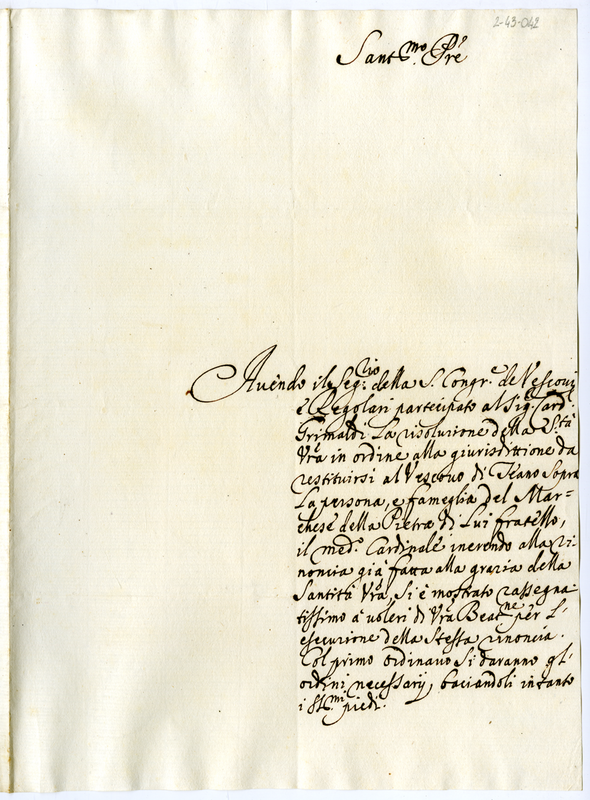 2-43-042
Sant.mo Prē
Auendo il Seg.rio della S. Congr.e de Vescoui
e Regolari partecipato al Sig.r Card.
Grimaldi La risoluzione della S.tà
Vrā in ordine alla giurisdittione da
restituirsi al Vescouo di Teano sopra
La persona, e fameglia del Mar=
chese della Pietra di Lui fratello,
il med.o Cardinale inerendo alla ri-
noncia già fatta alla grazia della
Santità Vrā, si è mostrato rassegna
tissimo à uoleri di Vrā Beat.ne per L'
esecuzione della stessa rinoncia.
Col primo ordinario si daranno gl'
ordini necessarij, baciandoli intanto
i SS.mi piedi.